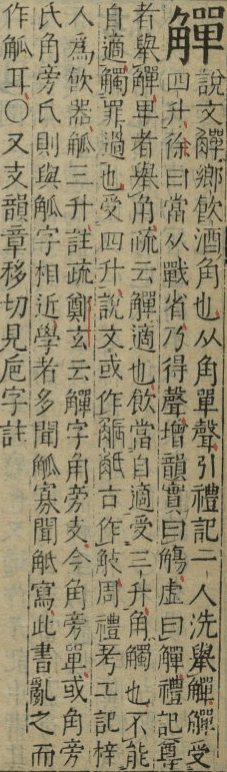 觶
說文觶鄉飲酒角也从角單聲引禮記二人洗舉觶觶受
四升徐曰當从戰省乃得聲增韻實曰觴虛曰觶禮記尊
者舉觶卑者舉角疏云觶適也飲當自適受三升角觸也不能
自適觸罪過也受四升說文或作觗古作周禮考工記梓
人爲飲器觚三升註疏鄭玄云觶字角旁支今角旁單或角旁
氏角旁氏則與觚字相近學者多聞觚寡聞觗寫此書亂之而
作觚耳○又支韻章移切見卮字註